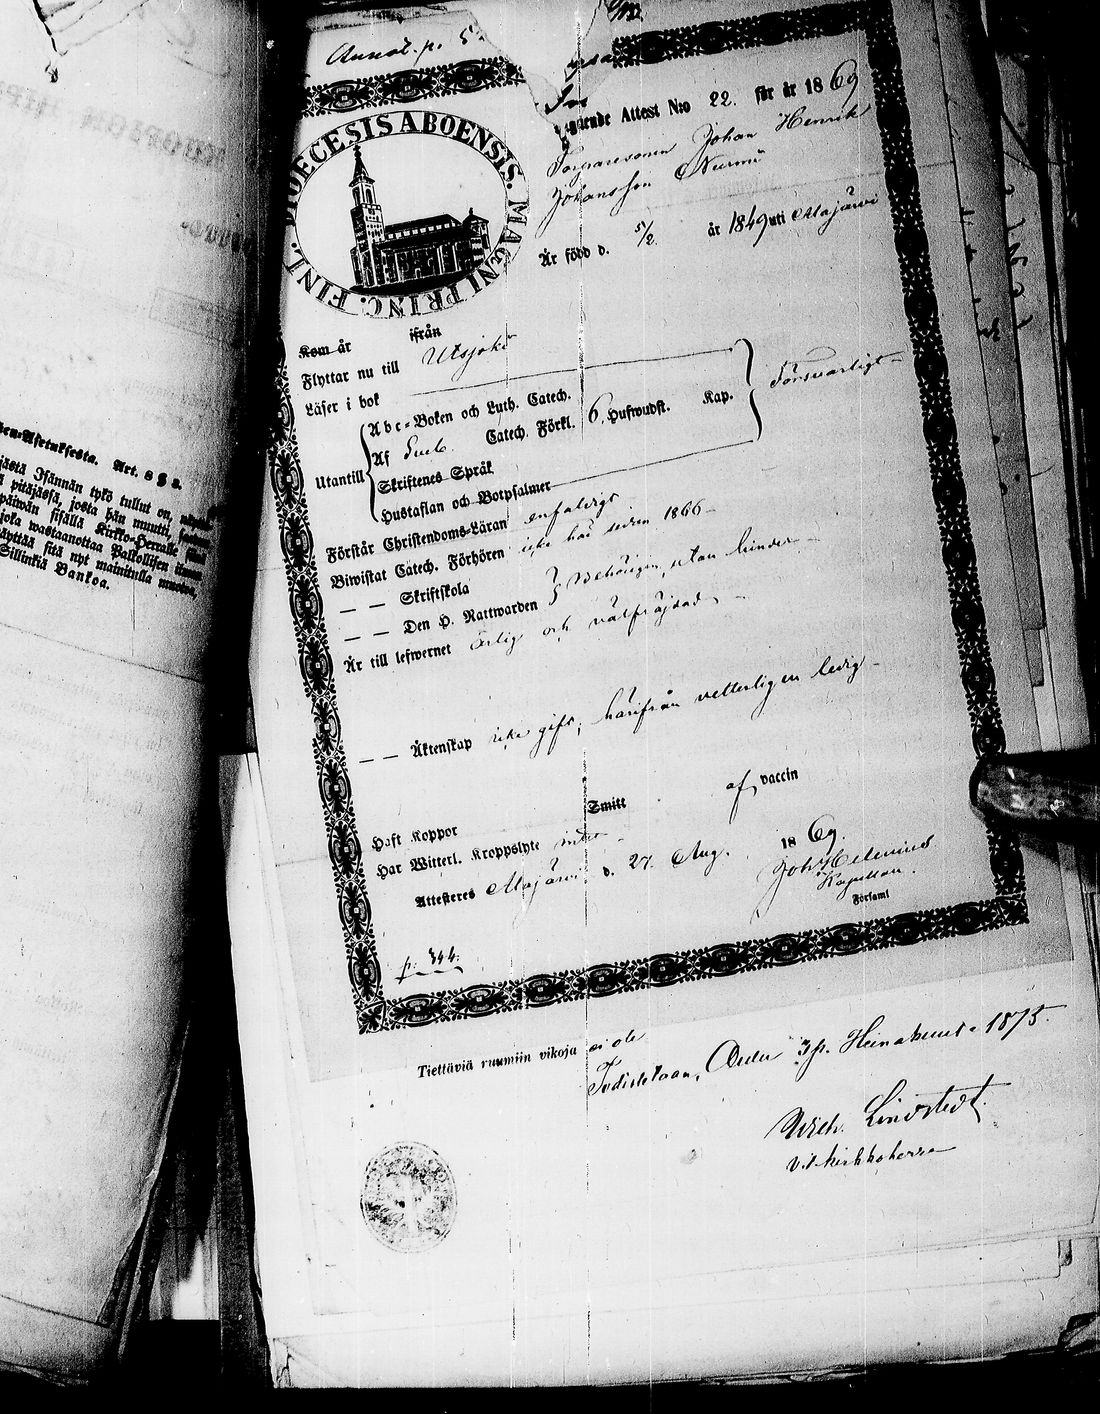 en-Asetuksesta. Art. 8 § 2.
jästä Isännän tykö tullut on,
pitäjässä, josta hän muutti,
päiwän sisällä Kirkko-Herralle
joka wastaanottaa Palkollisen
äyttää sitä nyt mainitulla
Sillinkiä Bankoa.
Annot. p. 5
DIOECESIS ABOENSIS. MAGNI PRINC. FINL.
gående Attest N:o 22. för år 1869
Torparesonen Johan Henrik
Johansson Nurmi
Är född d. 5/2. år 1849 uti Alajärvi
Kom år ifrån
Flyttar nu till Utsjoki
Läser i bok
Utantill
Abc-Boken och Luth. Catech.
Af Catech. Förkl. 6, Hufwudst. Kap.
Försvarligt
Skriftenes Språk
Hustaflan och Botpsalmer
Förstår Christendoms-Läran enfaldigt
Biwistat Catech. Förhören icke här sedan 1866
— — Skriftskola
— — Den H. Nattwarden
Behörigen, utan hinder
Är till lefwernet ärlig och välfräjdad
— — Äktenskap icke gift, härifrån vetterligen ledig
Haft Koppor Smitt af vaccin
Har Witterl. Kroppslyte intet
Attesteres Alajärvi d. 27. Aug. 1869.
Joh Helenius
Kapellan.
Församl
p. 344.
Tiettäviä ruumiin vikoja ei ole
Todistetaan, Oulu 3 p. Heinäkuuta 1875.
Wilh. Lindstedt.
v.t. kirkkoherra